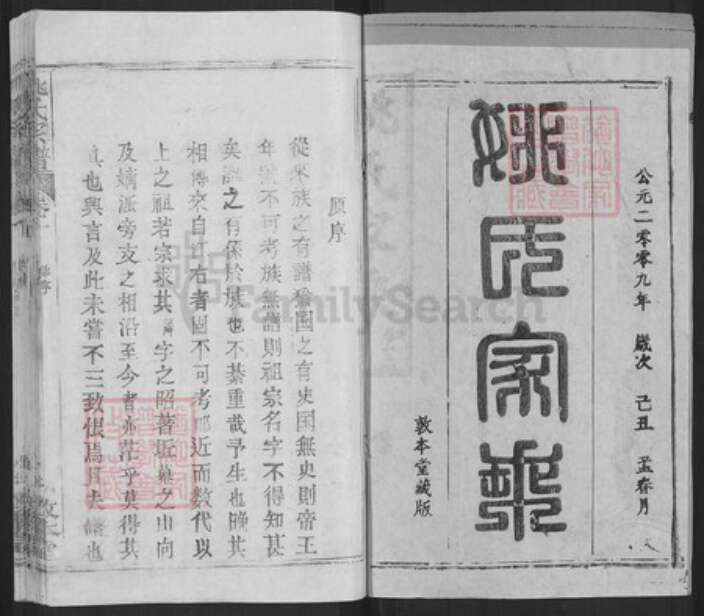 公元二零零九年 歲次 己丑 孟春月
姚氏家乘
敦本堂藏版
原序
從來族之有譜猶國之有史國無史則帝王
年號不可考族無譜則祖宗名字不得知甚
矣譜之有係於族也不綦重哉予生也晚其
相傳來自江右者固不可考即近而數代以
上之祖若宗求其諱字之昭著近墓之山向
及嫡派旁支之相沿至今者亦茫乎莫得其
真也興言及此未嘗不三致恨焉且夫譜也
姚氏家譜 卷一 原序
FamilySearch